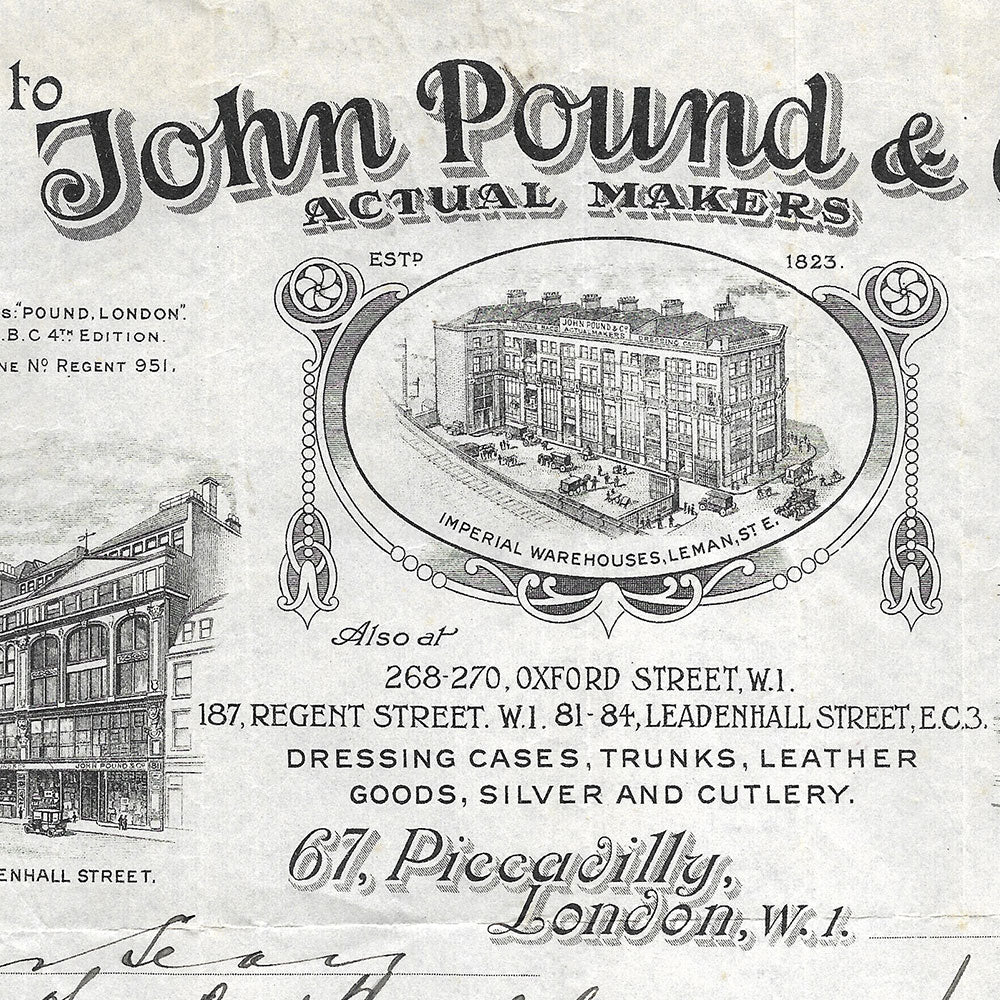 to
John Pound & 
ACTUAL MAKERS
ESTD 1823.
"POUND, LONDON".
.B.C 4TH EDITION.
NE No REGENT 951.
JOHN POUND & Co
ACTUAL MAKERS
DRESSING CASES
IMPERIAL WAREHOUSES, LEMAN, ST E.
Also at
268-270, OXFORD STREET, W.1.
187, REGENT STREET. W.1. 81-84, LEADENHALL STREET, E.C.3.
DRESSING CASES, TRUNKS, LEATHER
GOODS, SILVER AND CUTLERY.
JOHN POUND & Co 81
ENHALL STREET.
67, Piccadilly,
London, W.1.